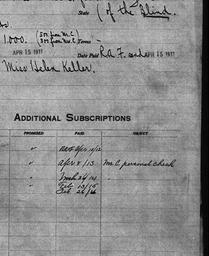 State (of the Blind.
1,000. (500 from Mr. C. Terms —
(500 from Mrs. C.
APR 15 1911 Date Paid R.A.F. and APR 15 1911
Miss Helen Keller.
ADDITIONAL SUBSCRIPTIONS
PROMISED PAID OBJECT
" Apr 10/12
" Apr 8/13 Mr C personal check
" Mch 24/14 "
" Feb 13/15
" Feb 26/16